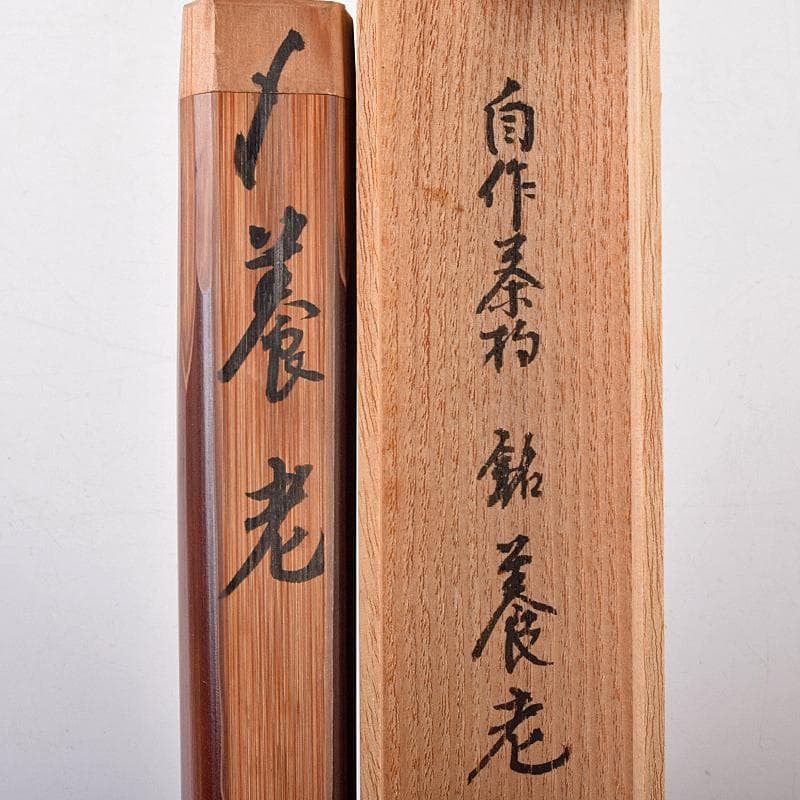 自作茶杓 銘 養老
養老